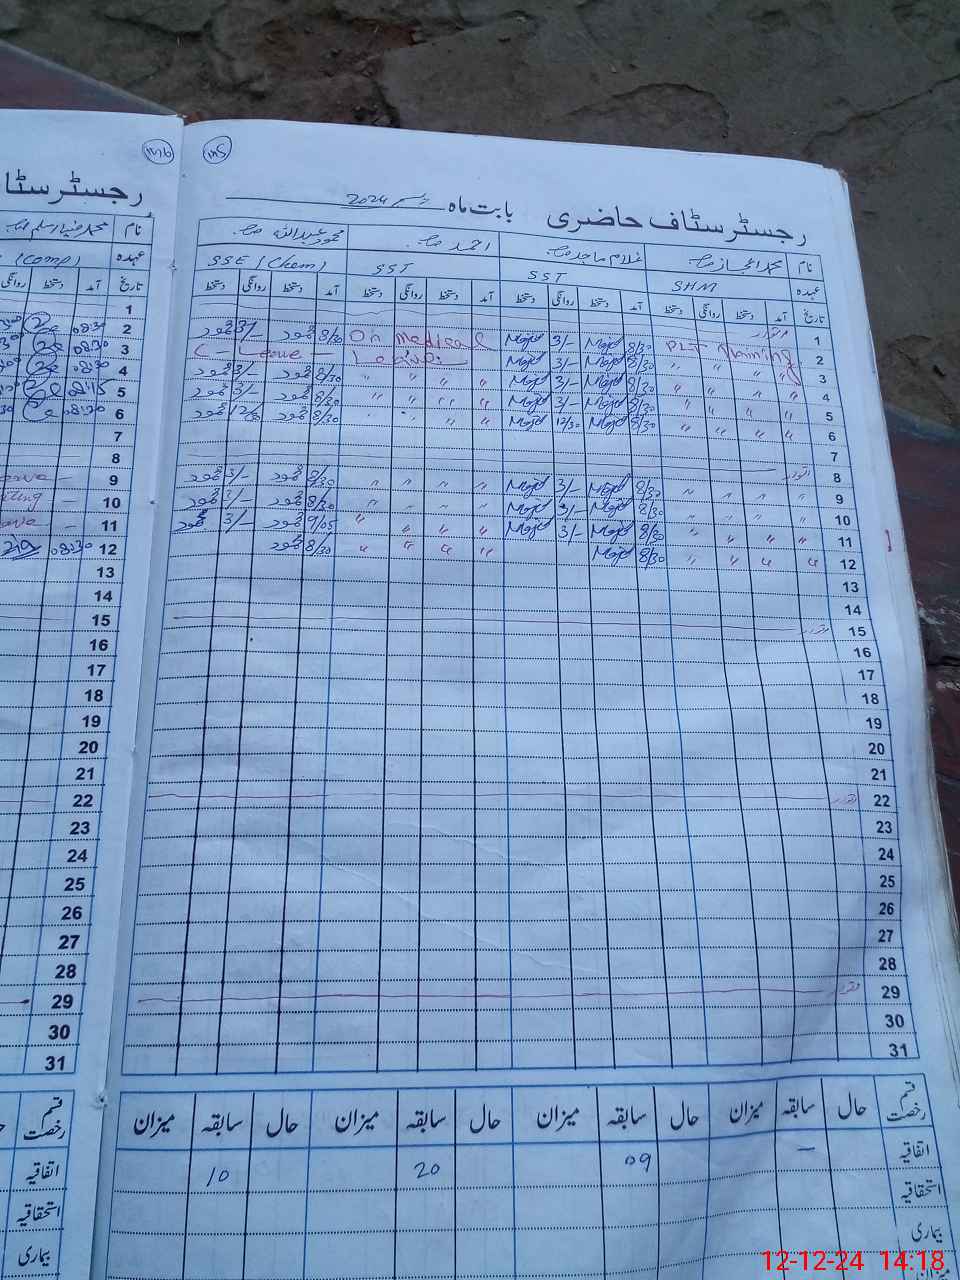 145
رجسٹر سٹاف حاضری بابت ماہ دسمبر 2024
نام محمد اعجاز صاحب غلام ماجد صاحب احمد صاحب محمود عبداللہ صاحب
عہدہ SHM SST SST SSE (Chem)
تاریخ آمد دستخط روانگی دستخط آمد دستخط روانگی دستخط آمد دستخط روانگی دستخط آمد دستخط روانگی دستخط
1 اتوار
2 Training 8/30 Majid 3/- Majid On medical 8/30 محمود 3/- محمود
3 " " " " 8/30 Majid 3/- Majid Leave C - Leave -
4 " " " " 8/30 Majid 3/- Majid " " " " 8/30 محمود 3/- محمود
5 " " " " 8/30 Majid 3/- Majid " " " " 8/30 محمود 3/- محمود
6 " " " " 8/30 Majid 12/30 Majid " " " " 8/30 محمود محمود
7
8 اتوار
9 " " " " 8/30 Majid 3/- Majid " " " " 8/30 محمود 3/- محمود
10 " " " " 8/30 Majid 3/- Majid " " " " 8/30 محمود 3/- محمود
11 " " " " 8/30 Majid 3/- Majid " " " " 9/05 محمود 3/- محمود
12 " " " " 8/30 Majid " " " " 8/30 محمود
13
14
15 اتوار
16
17
18
19
20
21
22 اتوار
23
24
25
26
27
28
29 اتوار
30
31
قسم رخصت حال سابقہ میزان حال سابقہ میزان حال سابقہ میزان حال سابقہ میزان
اتفاقیہ – 09 20 10
استحقاقیہ
بیماری
میزان
146
رجسٹر سٹا
نام
عہدہ (Comp)
تاریخ آمد دستخط روانگی
1
2 08:30
3 08:30
4 08:30
5 08:15
6 08:30
7
8
9
10
11
12 08:30
13
14
15
16
17
18
19
20
21
22
23
24
25
26
27
28
29
30
31
قسم رخصت
اتفاقیہ
استحقاقیہ
بیماری
12-12-24 14:18